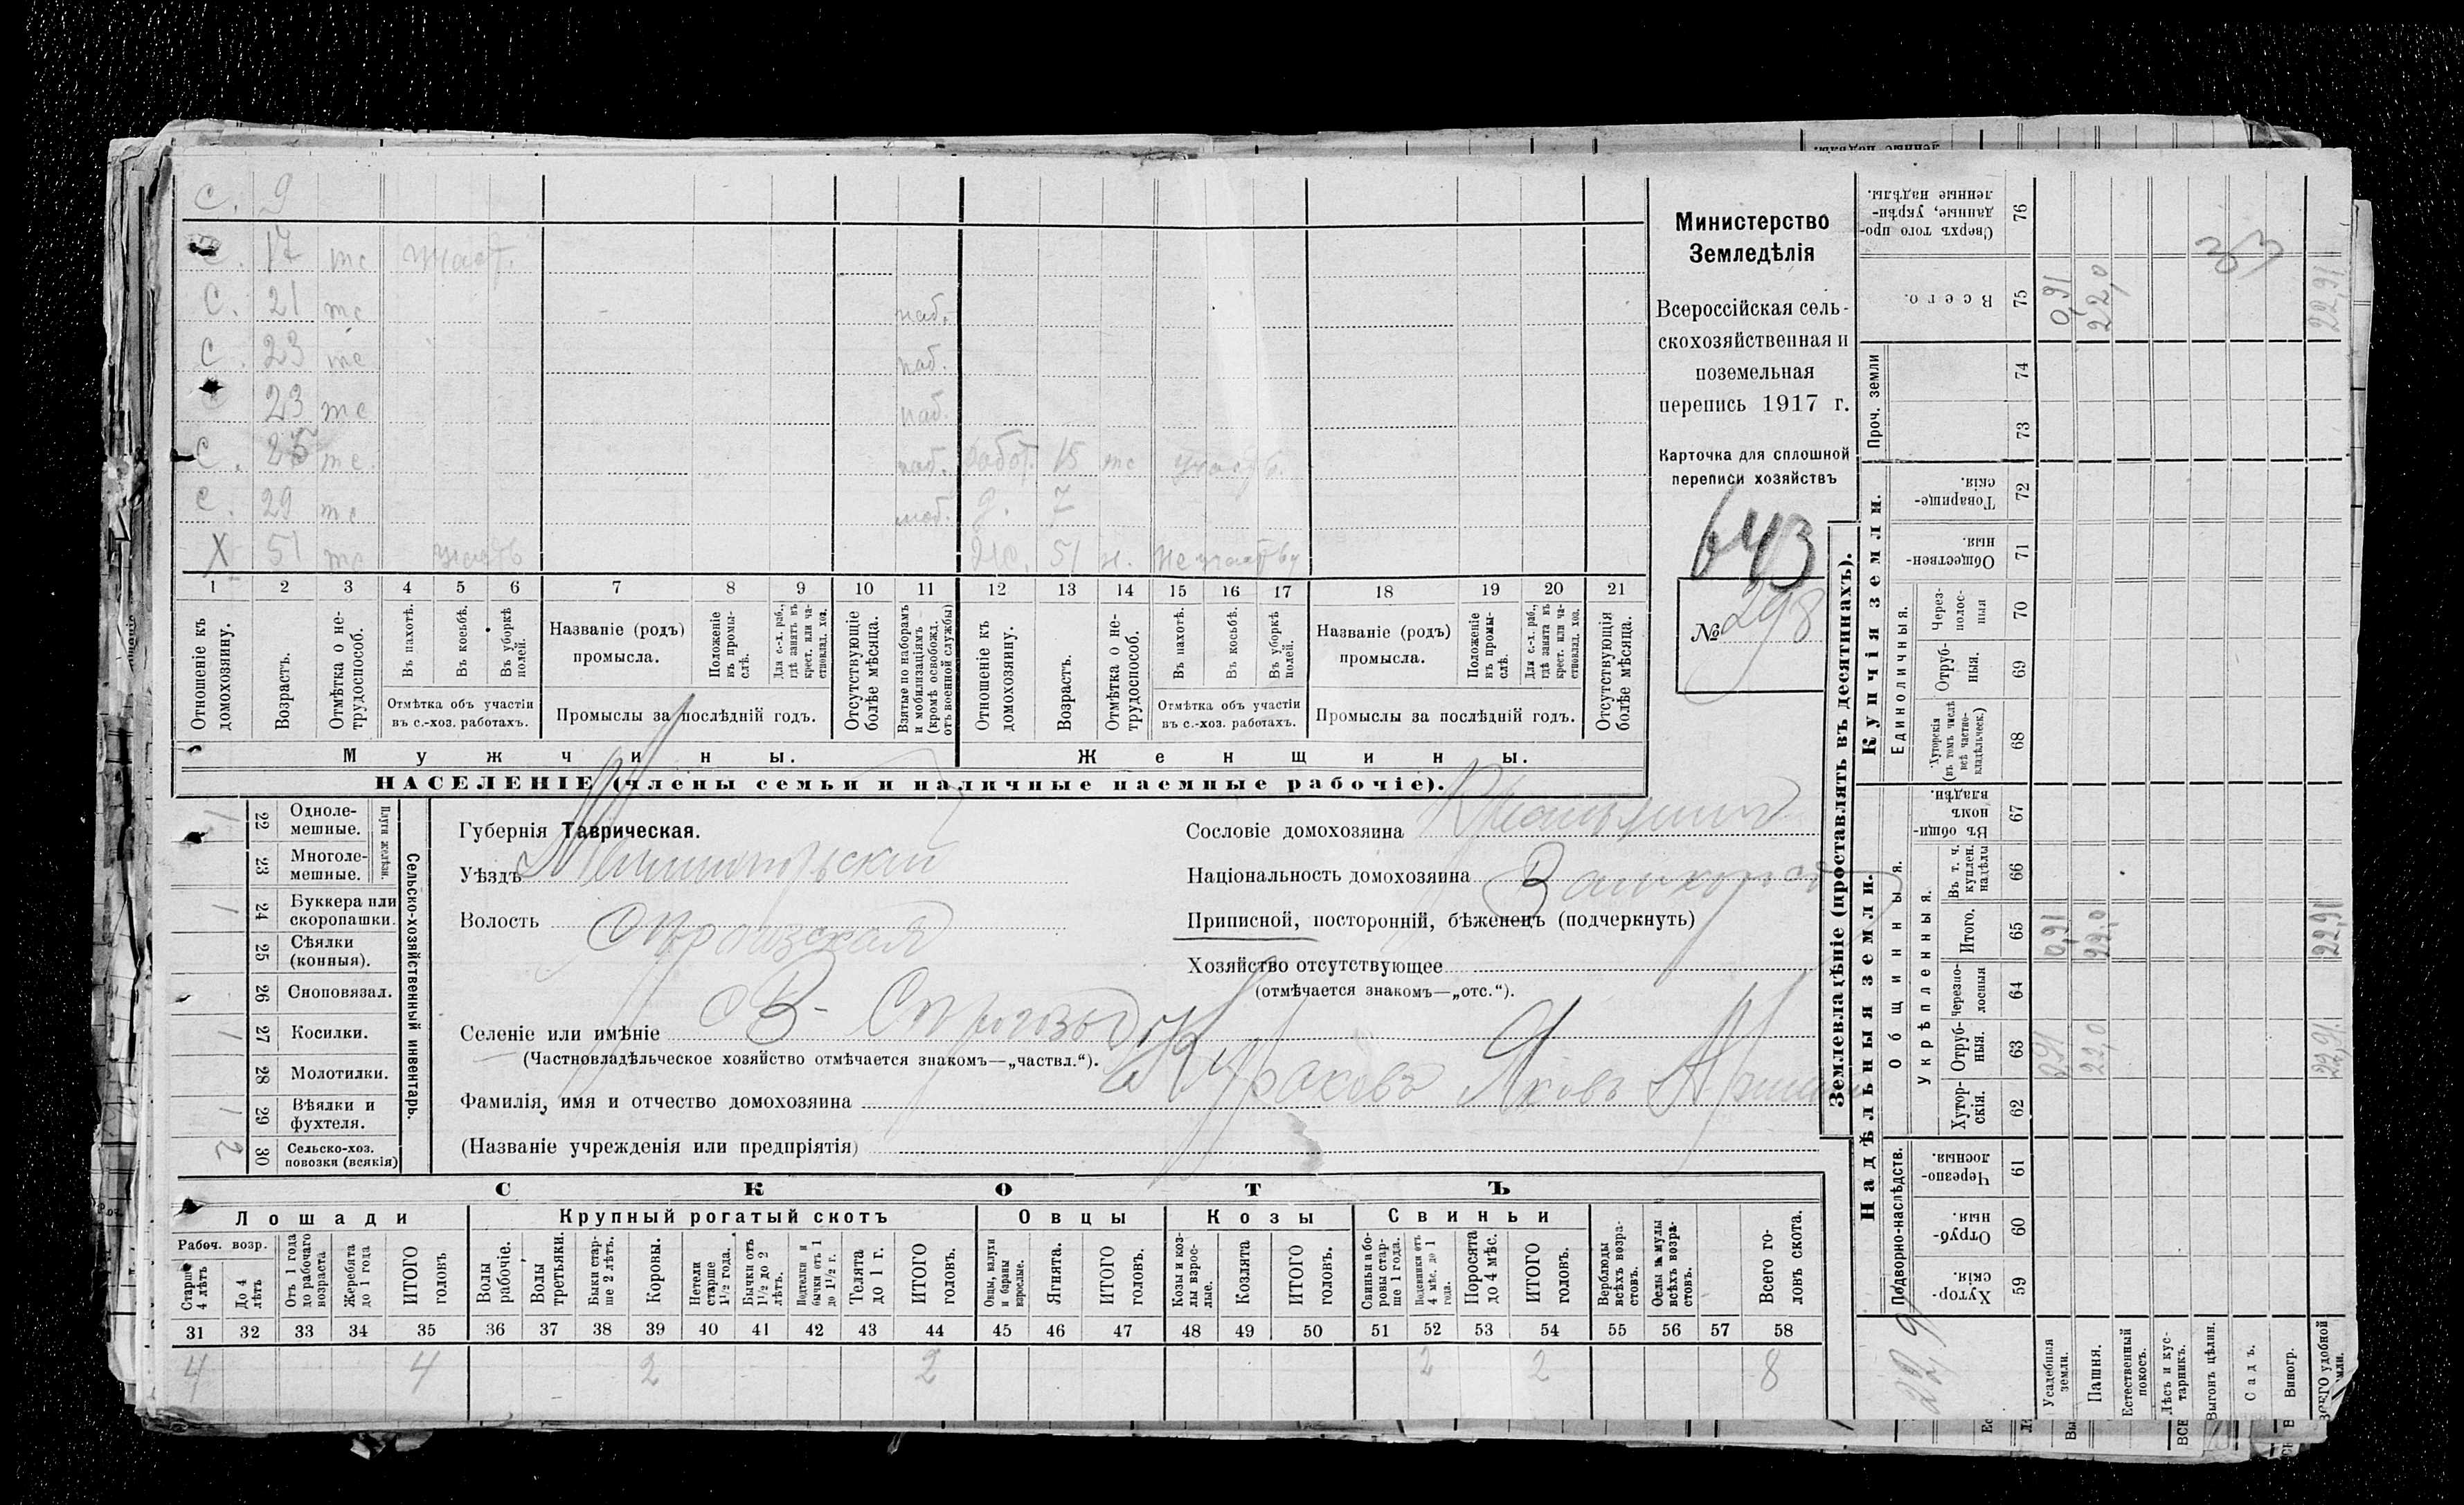 С. 9
С. 17 тс участ.
С. 21 тс наб.
С. 23 тс наб.
23 тс наб.
С. 25 тс наб. работ. 15 тс участв.
С. 29 тс моб. д. 7
Х 51 тс участв 51 н. не участву
1 2 3 4 5 6 7 8 9 10 11 12 13 14 15 16 17 18 19 20 21
Отношеніе къ домохозяину.
Возрастъ.
Отмѣтка о нетрудоспособ.
Въ пахотѣ.
Въ косьбѣ.
Въ уборкѣ полей.
Отмѣтка объ участіи въ с.-хоз. работахъ.
Названіе (родъ) промысла.
Положеніе въ промыслѣ.
Для с.-х. раб., гдѣ занятъ въ крест. или частновлад. хоз.
Промыслы за послѣдній годъ.
Отсутствующіе болѣе мѣсяца.
Взятые по наборамъ и мобилизаціямъ (кромѣ освобожд. отъ военной службы)
Отношеніе къ домохозяину.
Возрастъ.
Отмѣтка о нетрудоспособ.
Въ пахотѣ.
Въ косьбѣ.
Въ уборкѣ полей.
Отмѣтка объ участіи въ с.-хоз. работахъ.
Названіе (родъ) промысла.
Положеніе въ промыслѣ.
Для с.-х. раб., гдѣ занята въ крест. или частновлад. хоз.
Промыслы за послѣдній годъ.
Отсутствующія болѣе мѣсяца.
Мужчины. Женщины.
НАСЕЛЕНІЕ (члены семьи и наличные наемные рабочіе).
Министерство
Земледѣлія
Всероссійская сель-
скохозяйственная и
поземельная
перепись 1917 г.
Карточка для сплошной
переписи хозяйствъ
643
№ 298
Сельско-хозяйственный инвентарь.
Плуги желѣзн.
22 Одноле-мешные. 1
23 Многоле-мешные.
24 Буккера или скоропашки. 1
25 Сѣялки (конныя).
26 Сноповязал.
27 Косилки. 1
28 Молотилки.
29 Вѣялки и фухтеля. 1
30 Сельско-хоз. повозки (всякія) 2
Губернія Таврическая.
Уѣздъ Мелитопольскій
Волость
Селеніе или имѣніе В- Сирогозы
(Частновладѣльческое хозяйство отмѣчается знакомъ—„частвл.“).
Фамилія, имя и отчество домохозяина Яковъ
(Названіе учрежденія или предпріятія)
Сословіе домохозяина
Національность домохозяина
Приписной, посторонній, бѣженецъ (подчеркнуть)
Хозяйство отсутствующее
(отмѣчается знакомъ—„отс.“).
СКОТЪ
Лошади Крупный рогатый скотъ Овцы Козы Свиньи
Рабоч. возр.
Старше 4 лѣтъ
До 4 лѣтъ
Отъ 1 года до рабочаго возраста
Жеребята до 1 года
ИТОГО головъ
Волы рабочіе.
Волы третьяки.
Быки старше 2 лѣтъ.
Коровы.
Нетели старше 1½ года.
Бычки отъ 1½ до 2 лѣтъ.
Подтелки и бычки отъ 1 до 1½ г.
Телята до 1 г.
ИТОГО головъ.
Овцы, валухи и бараны взрослые.
Ягнята.
ИТОГО головъ.
Козы и козлы взрослые.
Козлята
ИТОГО головъ.
Свиньи и боровы старше 1 года.
Подсвинки отъ 4 мѣс. до 1 года.
Поросята до 4 мѣс.
ИТОГО головъ.
Верблюды всѣхъ возрастовъ.
Ослы и мулы всѣхъ возрастовъ.
Всего головъ скота.
31 32 33 34 35 36 37 38 39 40 41 42 43 44 45 46 47 48 49 50 51 52 53 54 55 56 57 58
4 4 2 2 2 2 8
Землевладѣніе (проставлять въ десятинахъ).
Надѣльныя земли. Купчія земли. Проч. земли
Подворно-наслѣдств.
Общинныя.
Укрѣпленныя.
Единоличныя.
Хутор-скія. 59
Отруб-ныя. 60
Черезпо-лосныя. 61
Хутор-скія. 62
Отруб-ныя. 63
Черезпо-лосныя 64
Итого. 65
Въ т. ч. куплен. надѣлы 66
Въ общинномъ владѣн. 67
Хуторскія (въ томъ числѣ всѣ частновладѣльческ.) 68
Отруб-ныя. 69
Через-полос-ныя 70
Обществен-ныя. 71
Товарище-скія. 72
73 74
Всего. 75
Сверхъ того проданные, укрѣпленные надѣлы. 76
Усадебныя земли. 0,91 0,91
Пашня. 22,0 22,0 22,0
Естественный покосъ.
Лѣсъ и кустарникъ.
Выгонъ цѣлин.
Садъ.
Виногр.
22,91 22,91 22,91
22,9